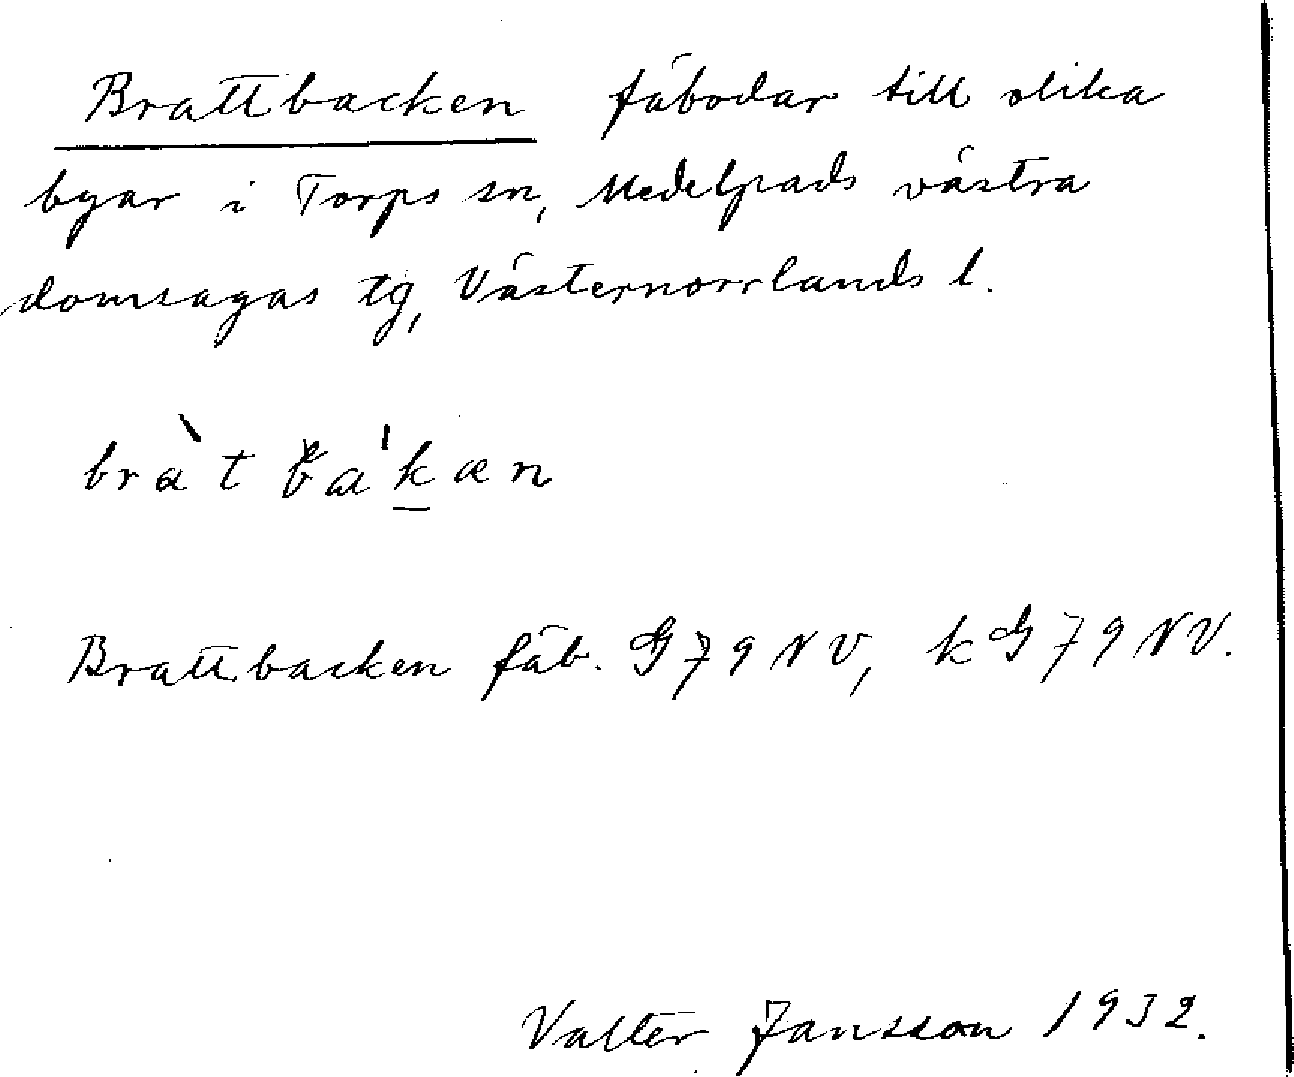 Brattbacken fäbodar till olika
byar i Torps sn, Medelpads västra
domsagas tg, Västernorrlands l.
bràt ba'kæn
Brattbacken fäb. G79NV, kG79NV.
Valter Jansson 1932.